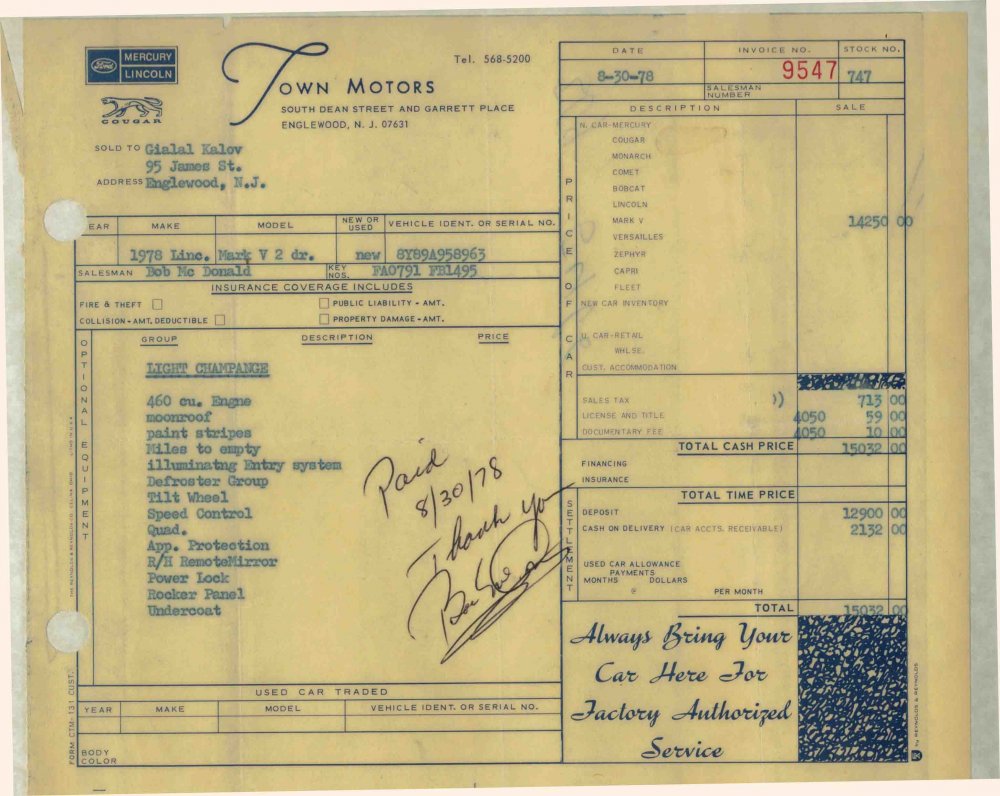 Ford
MERCURY
LINCOLN
COUGAR
Town Motors
SOUTH DEAN STREET AND GARRETT PLACE
ENGLEWOOD, N. J. 07631
Tel. 568-5200
DATE INVOICE NO. STOCK NO.
8-30-78 9547 747
SALESMAN NUMBER
SOLD TO Gialal Kalov
95 James St.
ADDRESS Englewood, N.J.
EAR MAKE MODEL NEW OR USED VEHICLE IDENT. OR SERIAL NO.
1978 Linc. Mark V 2 dr. new 8Y89A958963
SALESMAN Bob Mc Donald KEY NOS. FA0791 FB1495
INSURANCE COVERAGE INCLUDES
FIRE & THEFT PUBLIC LIABILITY - AMT.
COLLISION - AMT. DEDUCTIBLE PROPERTY DAMAGE - AMT.
OPTIONAL EQUIPMENT
GROUP DESCRIPTION PRICE
LIGHT CHAMPANGE
460 cu. Engne
moonroof
paint stripes
Miles to empty
illuminatng Entry system
Defroster Group
Tilt Wheel
Speed Control
Quad.
App. Protection
R/H RemoteMirror
Power Lock
Rocker Panel
Undercoat
Paid
8/30/78
Thank you
USED CAR TRADED
YEAR MAKE MODEL VEHICLE IDENT. OR SERIAL NO.
BODY COLOR
FORM CTM-131 CUST.
DESCRIPTION SALE
PRICE OF CAR
N. CAR-MERCURY
COUGAR
MONARCH
COMET
BOBCAT
LINCOLN
MARK V 14250 00
VERSAILLES
ZEPHYR
CAPRI
FLEET
NEW CAR INVENTORY
U. CAR-RETAIL
WHLSE.
CUST. ACCOMMODATION
SALES TAX )) 713 00
LICENSE AND TITLE 4050 59 00
DOCUMENTARY FEE 4050 10 00
TOTAL CASH PRICE 15032 00
FINANCING
INSURANCE
TOTAL TIME PRICE
SETTLEMENT
DEPOSIT 12900 00
CASH ON DELIVERY (CAR ACCTS. RECEIVABLE) 2132 00
USED CAR ALLOWANCE
PAYMENTS
MONTHS DOLLARS
@ PER MONTH
TOTAL 15032 00
Always Bring Your
Car Here For
Factory Authorized
Service
by REYNOLDS & REYNOLDS